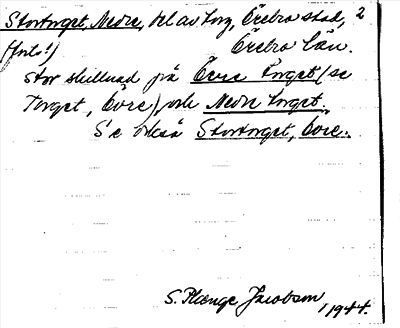 Stortorget, Nedre, del av torg, Örebro stad, 2
(forts!) Örebro län.
Stor skillnad på Övre Torget (se
Torget, Övre), och Nedre torget.
Se också Stortorget, Övre.
S. Plænge Jacobson, 1944.